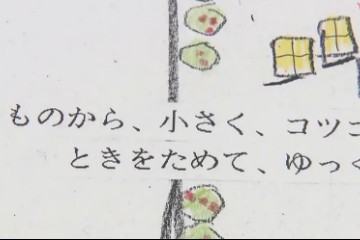 ものから、小さく、コツコ
ときをためて、ゆっく